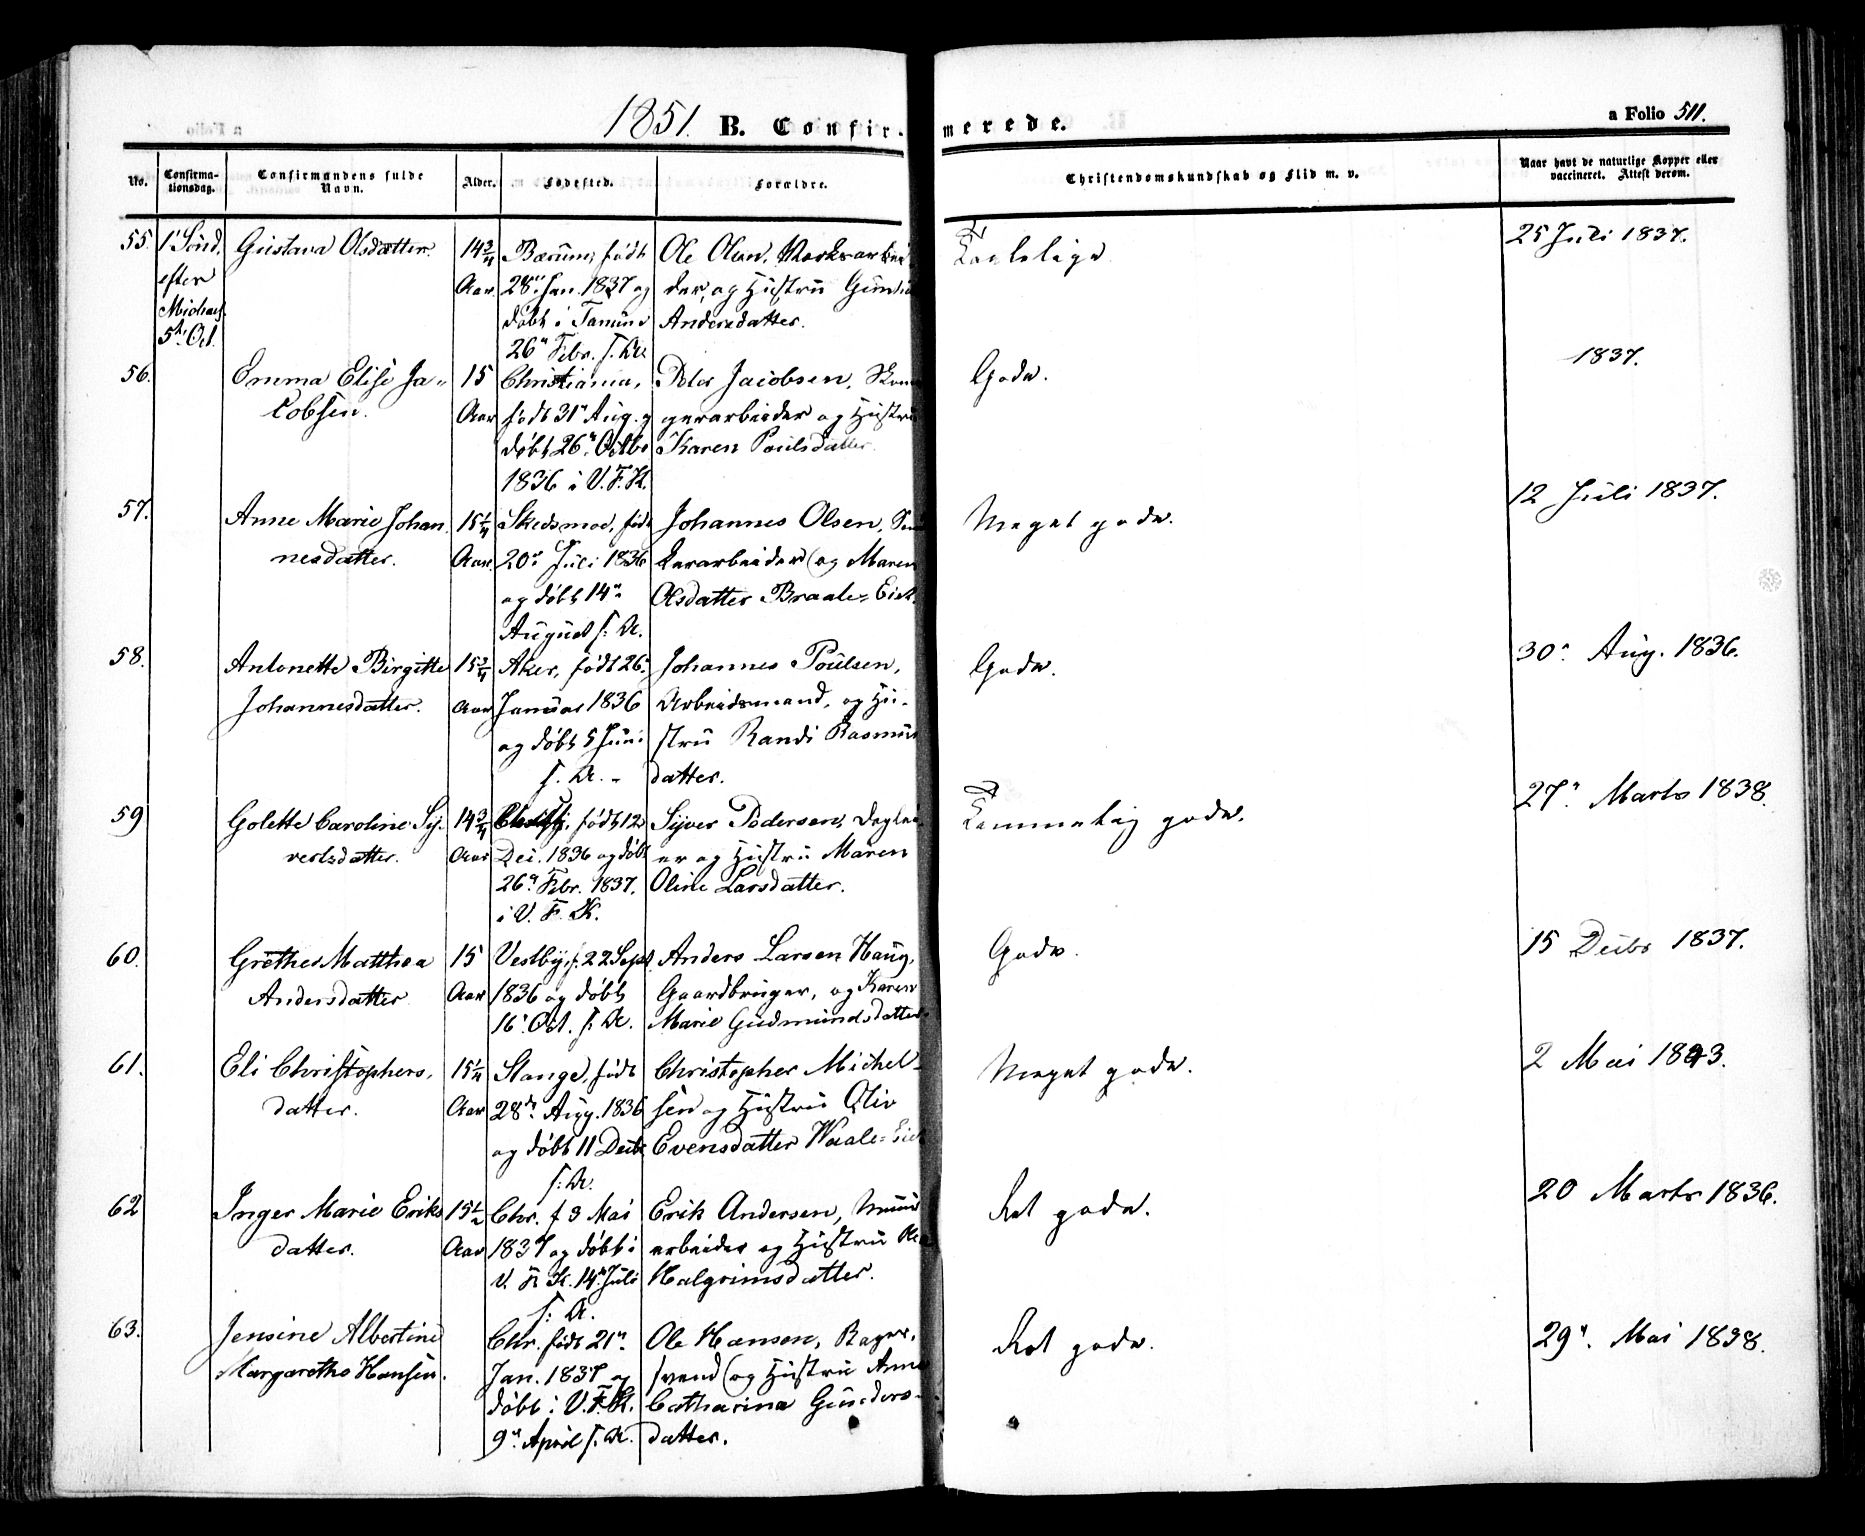 1851. B. Confirmerede.
a Folio 511.
No. Confirmationsdag. Confirmandens fulde Navn. Alder. Fødested. Forældre. Christendomskundskab og Flid m. v. Naar havt de naturlige Kopper eller vaccineret. Attest derom.
55. 1' Sønd. Gustava Olsdatter. 14 3/4 Bærum, født Ole Olsen, Værksarbei 25 Juli 1837.
efter Aar 28" Jan. 1837 og der, og Hustru
Michael. døbt i Tanum Andersdatter.
5te Oct. 26" Febr. s. A.
56. Emma Elise Ja- 15 Christiania, Peder Jacobsen, Gode. 1837.
cobsen. Aar født 31" Aug. og gerarbeider og Hustru
døbt 26" Octbr Karen Poulsdatter.
1836 i V. F. K.
57. Anne Marie Johan 15 1/4 Skedsmoe, født Johannes Olsen, Meget gode. 12 Juli 1837.
nesdatter. Aar. 20" Juli 1836 kerarbeider (og Maren
og døbt 14" Olsdatter Braate-Eiet.
August s. A.
58. Antonette Birgitte 15 3/4 Aker, født 26" Johannes Poulsen, Gode. 30" Aug. 1836.
Johannesdatter. Aar Januar 1836 Arbeidsmand, og Hu-
og døbt 5 Juni stru Randi Rasmus
s. A. datter.
59 Golette Caroline Sy- 14 3/4 født 12 Syver Pedersen, Dagleie- Temmelig gode. 27" Marts 1838.
vertsdatter. Aar Dec. 1836 og døbt er og Hustru Maren
26" Febr. 1837. Oline Larsdatter.
i V. F. K.
60. Grethe Matthea 15 Vestby, f. 22 Sept Anders Larsen Haug, Gode. 15 Decbr 1837.
Andersdatter Aar 1836 og døbt Gaardbruger, og Karen
16" Oct. s. A. Marie Gudmundsdatter
61. Eli Christophers- 15 1/4 Stange, født Christopher Michel- Meget gode. 2 Mai 1843.
datter. Aar 28de Aug. 1836 sen og Hustru Oliv
og døbt 11 Decbr Evensdatter Waale-Eiet
s. A.
62 Inger Marie Eriks 15 1/2 Chr. f 3 Mai Erik Andersen, Muur Ret gode. 20 Marts 1836.
datter. Aar 1837 og døbt i arbeider og Hustru
V. F. K. 14" Juli Halgrimsdatter.
s. A.
63. Jensine Albertine Chr. født 21" Ole Hansen, Bager- Ret gode. 29" Mai 1838.
Margarethe Hansen. Jan. 1837 og svend (og Hustru Anne
døbt i V. F. K. Catharina Gunders-
9" April s. A. datter.